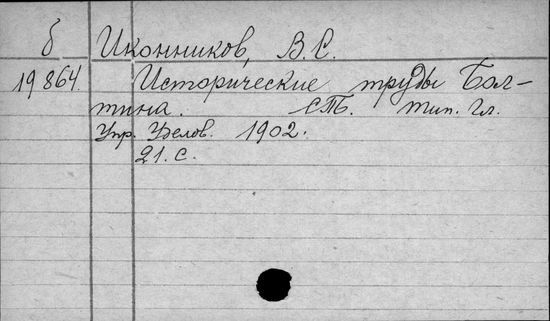 б Иконников, В.С.
19864. Исторические труды Бол-
тина. СПб. Тип. Гл.
Упр. Уделов. 1902.
21. с.